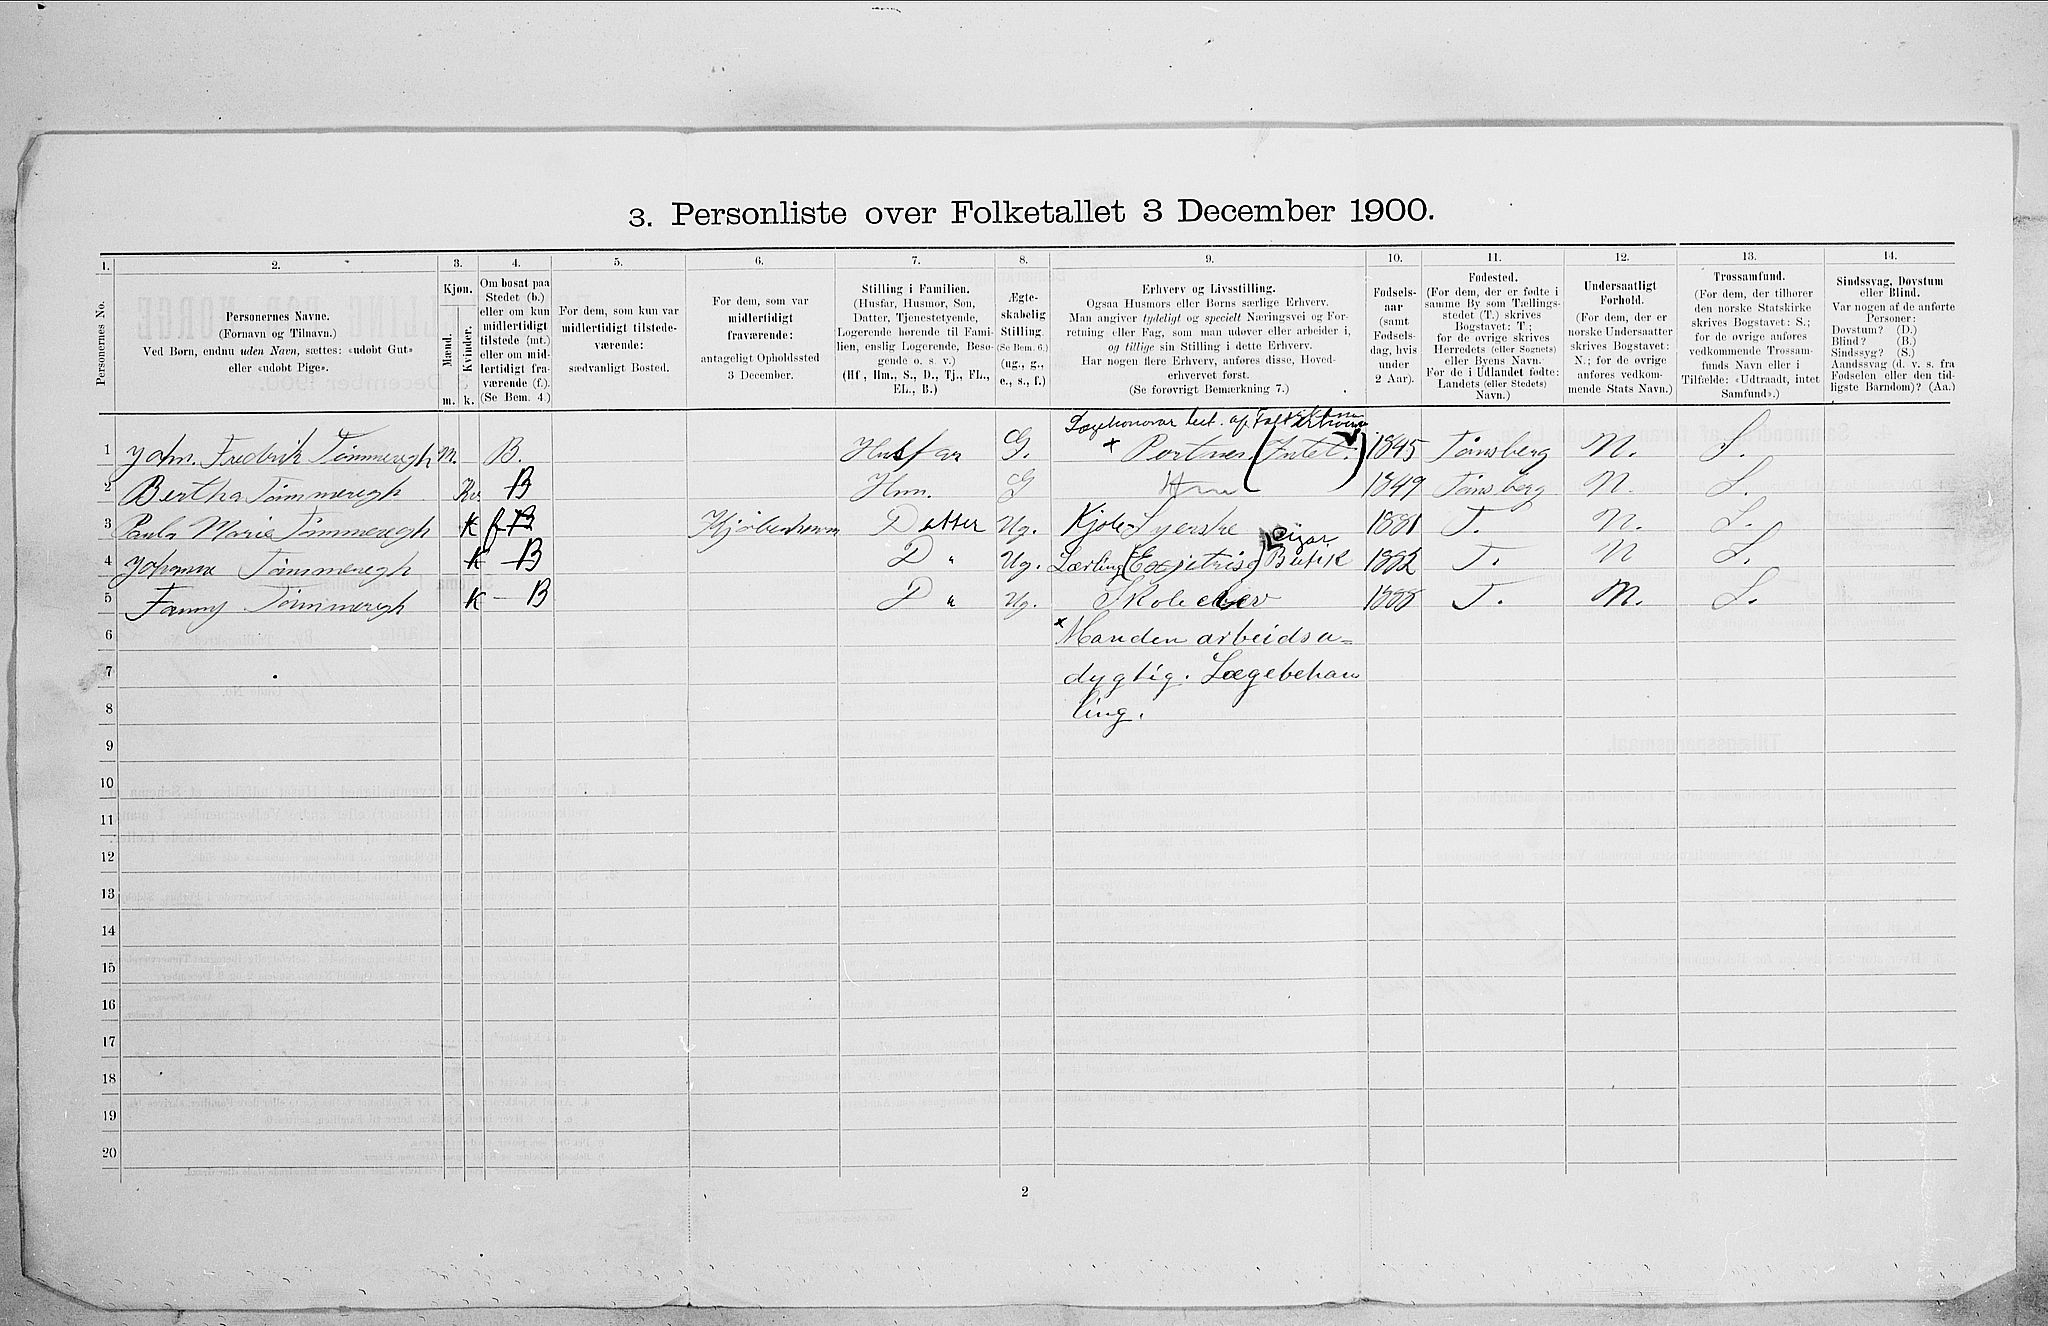 3. Personliste over Folketallet 3 December 1900.
1. 2. 3. 4. 5. 6. 7. 8. 9. 10. 11. 12. 13. 14.
Personernes No.
Personernes Navne.
(Fornavn og Tilnavn.)
Ved Børn, endnu uden Navn, sættes: «udøbt Gut»
eller «udøbt Pige».
Kjøn.
Mænd. Kvinder.
m. k.
Om bosat paa
Stedet (b.)
eller om kun
midlertidigt
tilstede (mt.)
eller om mid-
lertidigt fra-
værende (f.).
(Se Bem. 4.)
For dem, som kun var
midlertidigt tilstede-
værende:
sædvanligt Bosted.
For dem, som var
midlertidigt
fraværende:
antageligt Opholdssted
3 December.
Stilling i Familien.
(Husfar, Husmor, Søn,
Datter, Tjenestetyende,
Logerende hørende til Fami-
lien, enslig Logerende, Besø-
gende o. s. v.)
(Hf, Hm., S., D., Tj., FL.,
EL., B.)
Ægte-
skabelig
Stilling.
(Se Bem. 6.)
(ug., g.,
e., s., f.)
Erhverv og Livsstilling.
Ogsaa Husmors eller Børns særlige Erhverv.
Man angiver tydeligt og specielt Næringsvei og For-
retning eller Fag, som man udøver eller arbeider i,
og tillige sin Stilling i dette Erhverv.
Har nogen flere Erhverv, anføres disse, Hoved-
erhvervet først.
(Se forøvrigt Bemærkning 7.)
Fødsels-
aar
(samt
Fødsels-
dag, hvis
under
2 Aar).
Fødested.
(For dem, der er fødte i
samme By som Tællings-
stedet (T.) skrives
Bogstavet: T.;
for de øvrige skrives
Herredets (eller Sognets)
eller Byens Navn.
For de i Udlandet fødte:
Landets (eller Stedets)
Navn.)
Undersaatligt
Forhold.
(For dem, der er
norske Undersaatter
skrives Bogstavet:
N.; for de øvrige
anføres vedkom-
mende Stats Navn.)
Trossamfund.
(For dem, der tilhører
den norske Statskirke
skrives Bogstavet: S.;
for de øvrige anføres
vedkommende Trossam-
funds Navn eller i
Tilfælde: «Udtraadt, intet
Samfund».)
Sindssvag, Døvstum
eller Blind.
Var nogen af de anførte
Personer:
Døvstum? (D.)
Blind? (B.)
Sindssyg? (S.)
Aandssvag (d. v. s. fra
Fødselen eller den tid-
ligste Barndom)? (Aa.)
Lægehonorar bet. af
1 John. Fredrik Tømmeregh M. B. Husfar G. × Portner (Intet.) 1845 Tønsberg N. S.
2 Bertha Tømmeregh Kv. B Hm. G Hm 1849 Tønsberg N. S.
3 Paula Marie Tømmeregh K f B Kjøbenhavn Datter Ug. Kjole-Syerske 1881 T. N. S.
Cigar
4 Johanne Tømmeregh K B D " Ug. Lærling (Expeditrise) Butik 1882 T. N S.
5 Fanny Tømmeregh K - B D " Ug. Skoleelev 1888 T. N. S.
6 × Manden arbeidsu=
7 dygtig. Lægebehan
8 ling.
9
10
11
12
13
14
15
16
17
18
19
20
2